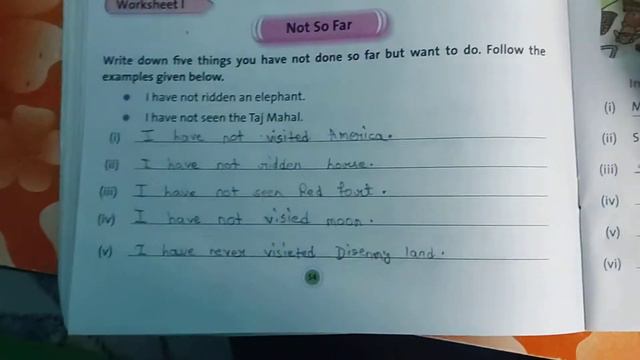 Worksheet I
Not So Far
Write down five things you have not done so far but want to do. Follow the
examples given below.
• I have not ridden an elephant.
• I have not seen the Taj Mahal.
(i) I have not visited America.
(ii) I have not ridden horse.
(iii) I have not seen Red fort.
(iv) I have not visied moon.
(v) I have never visieted Disenny land.
54
In
(i) M
(ii) S
(iii)
(iv)
(v)
(vi)